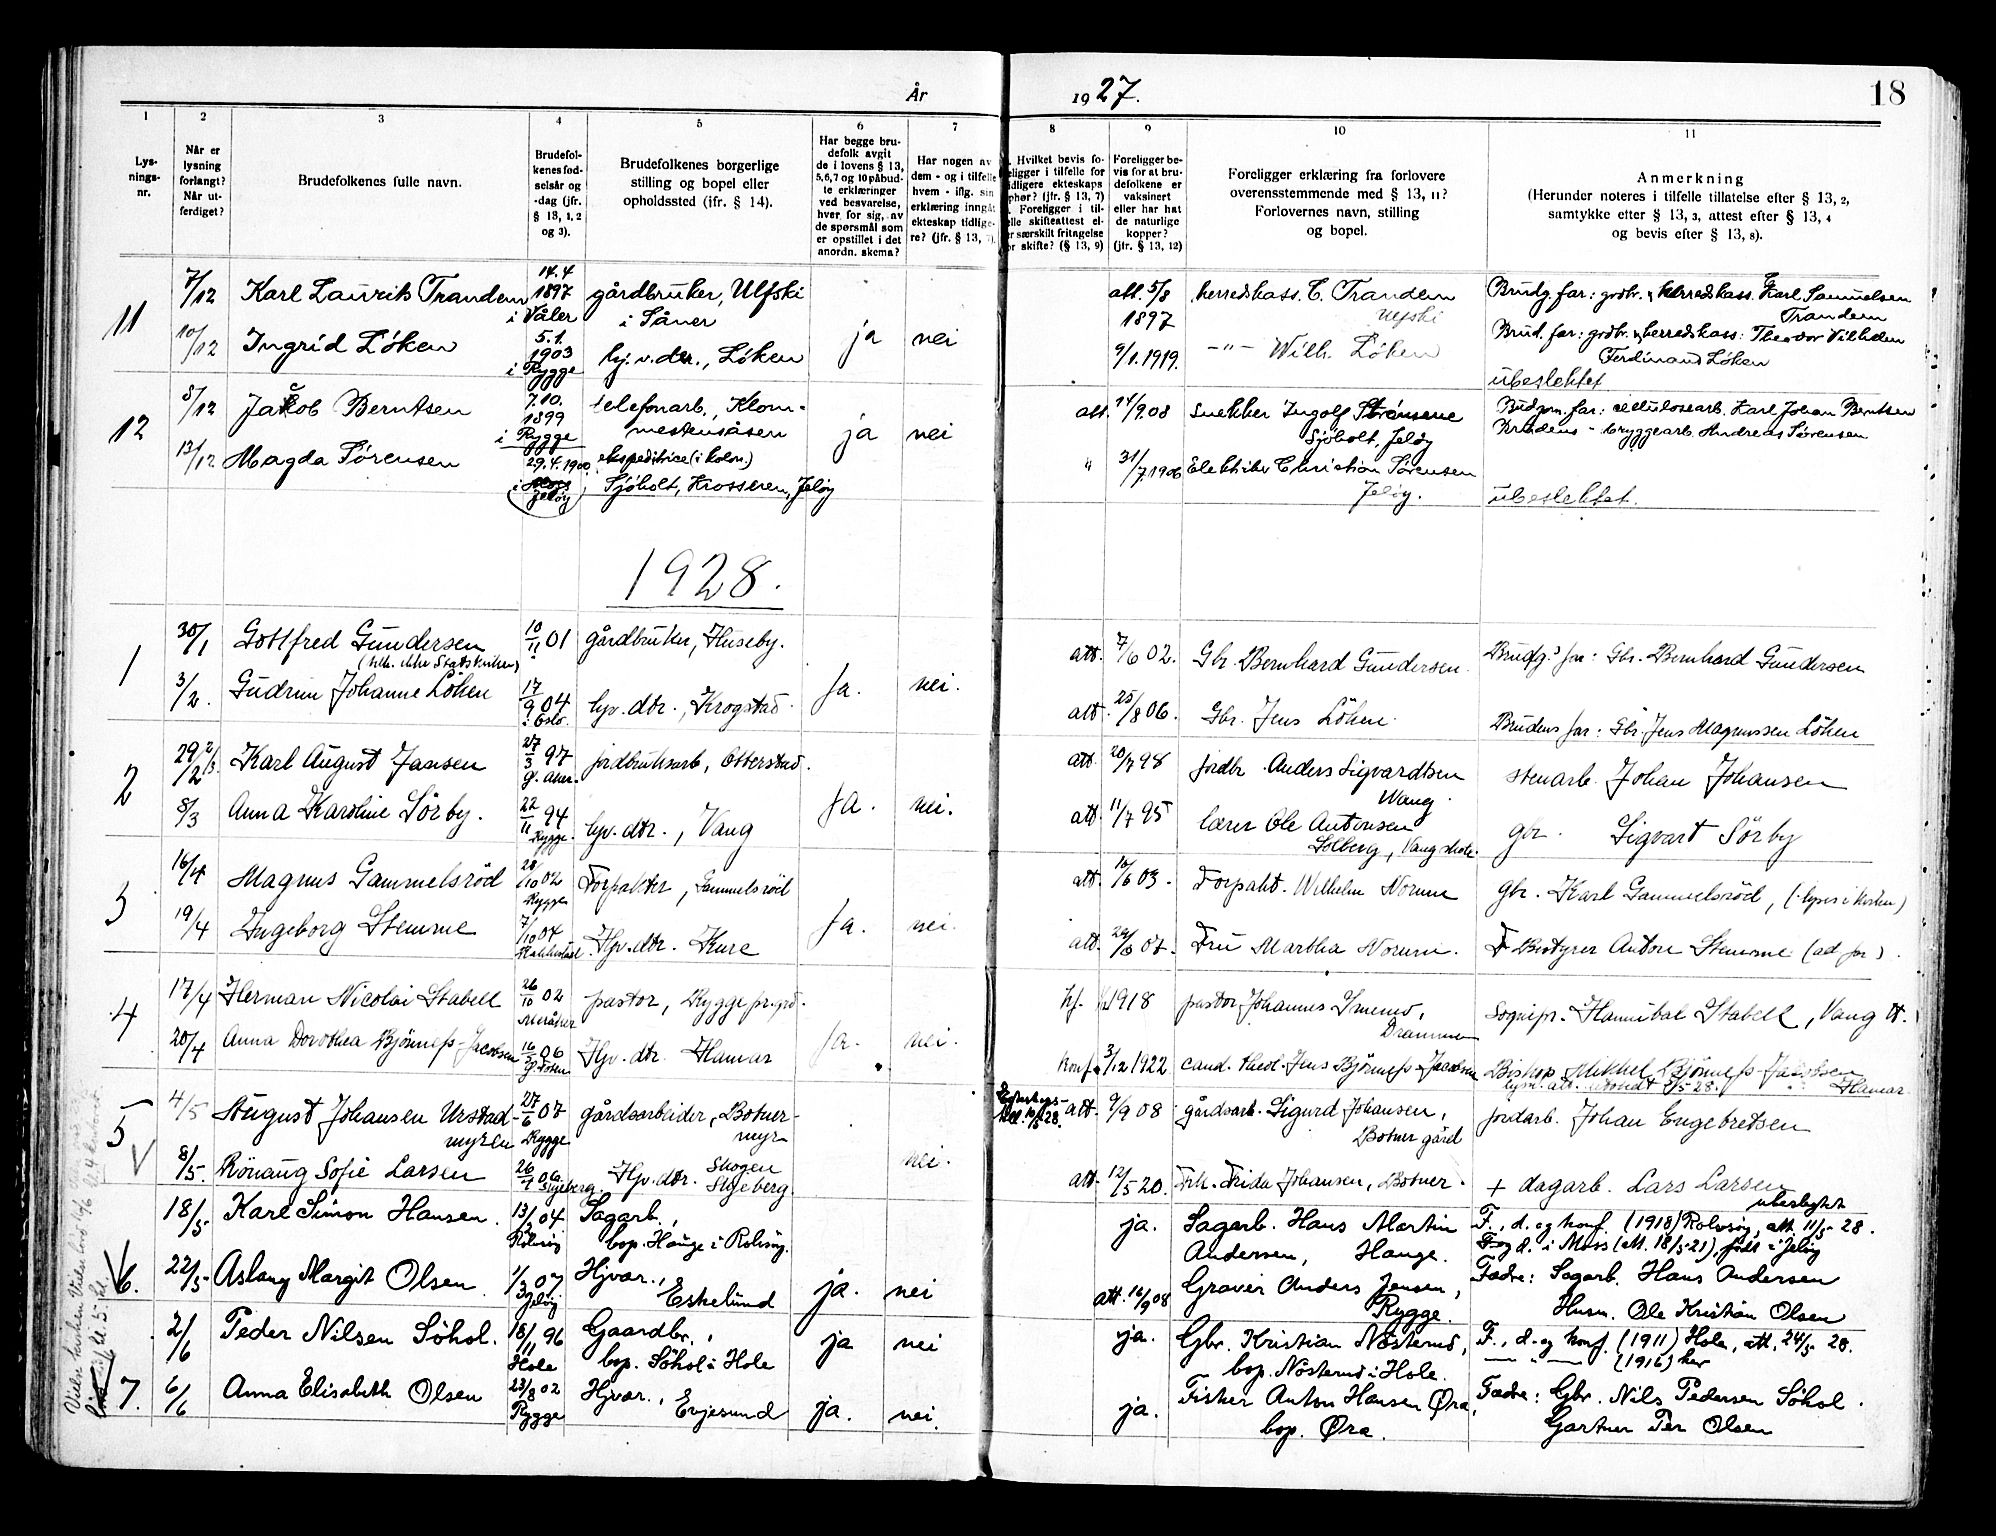 År 1927.
18
1 2 3 4 5 6 7 8 9 10 11
Lysningsnr.
Når er lysning forlangt? Når utferdiget?
Brudefolkenes fulle navn.
Brudefolkenes fødselsår og -dag (jfr. § 13, 1, 2 og 3).
Brudefolkenes borgerlige stilling og bopel eller opholdssted (ifr. § 14).
Har begge brudefolk avgit de i lovens § 13, 5, 6, 7 og 10 påbudte erklæringer ved besvarelse, hver for sig, av de spørsmål som er opstillet i det anordn. skema?
Har nogen av dem - og i tilfelle hvem - iflg. sin erklæring inngåt ekteskap tidligere? (jfr. § 13, 7).
Hvilket bevis foreligger i tilfelle for tidligere ekteskaps ophør? (jfr. § 13, 7) Foreligger i tilfelle skifteattest eller særskilt fritagelse for skifte? (§ 13, 9)
Foreligger bevis for at brudefolkene er vaksinert eller har hat de naturlige kopper? (jfr. § 13, 12)
Foreligger erklæring fra forlovere overensstemmende med § 13, 11? Forlovernes navn, stilling og bopel.
Anmerkning
(Herunder noteres i tilfelle tillatelse efter § 13, 2, samtykke efter § 13, 3, attest efter § 13, 4 og bevis efter § 13, 8).
11
7/12 Karl Laurits Trandem 14.4 1897 i Våler gårdbruker, Ulfski i Såner
att. 5/8 1897 herredskass. C. Trandem
Brudg. far: grdbr. & herredskass. Karl Samuelsen Trandem
10/12 Ingrid Löken 5.1. 1903 i Rygge hj.v.dtr., Löken ja nei
9/1.1919. -"- Wilh. Löken
Brud. far: grdbr. & herredskass: Theodor Vilhelm Ferdinand Löken
ubeslektet
12
8/12 Jakob Berntsen 7.10. 1899 i Rygge telefonarb., Klommestensåsen ja nei
att. 14/9.08 snekker Ingolf
Sjöholt, Jelöy
Brudgm. far: cellulosearb. Karl Johan Berntsen
13/12 Magda Sörensen 29.4.1900 i Jelöy ekspeditrice (i kolon.) Sjöholt, Krosseren, Jelöy
" 31/7.1906 Elektriker Christian Sörensen Jelöy.
Brudens - bryggearb. Andreas Sørensen
ubeslektet.
1928.
1
30/1 Gottfred Gundersen 10/11 01 gårdbruker, Huseby.
att. 7/6 02. Gbr. Bernhard Gundersen.
Brudg.s far: Gbr. Bernhard Gundersen
3/2. Gudrun Johanne Löken 17/9 04 i Oslo. hjv. dtr., Krogstad. Ja. nei.
att. 25/8 06. Gbr. Jens Löken.
Brudens far: Gbr. Jens Magnussen Löken
2
29/2 2/3 Karl August Jansen 27/3 97 jordbruksarb, Otterstad.
att. 20/7 98 jordbr. Anders Sigvardtsen Wang.
stenarb. Johan Johansen
8/3 Anna Karoline Sörby. 22/11 94 Rygge. hjv. dtr., Vang Ja. nei.
att. 11/7 95 lærer Ole Antonsen Solberg, Vang skole.
gbr. Sigvart Sörby
3
16/4 Magnus Gammelsröd 28/10 02 Rygge Forpakter, Gammelsröd
att. 10/6 03. Forpakt. Wilhelm Norum
gbr. Karl Gammelsröd, (lyses i kirken)
19/4 Ingeborg Stemme 7/10 04 Hjv. dtr. Kure Ja. nei.
att. Fru Martha Norum.
Bestyrer Anton Stemme (ad. far).
4
17/4 Herman Nicolai Stabell 26/10 02 pastor, Rygge pr.grd.
kf. 1918 pastor Johannes Smemo, Drammen
Sognepr. Hannibal Stabell, Vang
20/4 Anna Dorothea Bjönness-Jacobsen 16/3 06 Hjv. dtr. Hamar Ja. nei.
konf. 3/12 1922 cand. theol. Jens Bjönness-Jacobsen
Bishop Mikkel Bjönness-Jacobsen Hamar
5
4/5 August Johansen Urstadmyren 27/6 07 Rygge gårdsarbeider, Botnermyr
att. 9/9 08 gårdsarb. Sigurd Johansen, Botner gård
jordarb. Johan Engebretsen
8/5. Rönaug Sofie Larsen Skjeberg. Hjv. dtr. Skogen Skjeberg. nei.
att. 12/5 20. Frk. Frida Johansen, Botner.
+ dagarb. Lars Larsen
ubeslegtet
6.
18/5 Karl Simon Hansen. 13/12 04 Rolvsöy Sagarb., bop. Hauge i Rolvsöy.
ja. Sagarb. Hans Martin Andersen, Hauge.
F., d. og konf. (1918) Rolvsöy, att 11/5 28.
F. og d. i Moss (att. 18/5 21), født i Jelöy
22/5 Aslaug Margit Olsen. 1/3 07 Jelöy Hjvar., Eskelund ja. nei
att. 16/9 08 Graver Anders Jensen, Rygge.
Fædre: Sagarb. Hans Andersen
Husm. Ole Kristian Olsen
7.
2/6 Peder Nilsen Söhol. 18/11 96 Hole Gaardbr., bop. Söhol i Hole ja nei
ja. Gbr. Kristian Nösterud, bop. Nösterud i Hole.
F., d. og konf. (1911) Hole, att. 24/5 28.
— " — (1916) her
6/6 Anna Elisabeth Olsen 23/8 02 Rygge Hjvar., Evjesund ja. nei.
ja. Fisker Anton Hansen Øra, bop. Øra.
Fædre: Gbr. Nils Pedersen Söhol.
Gartner Per Olsen